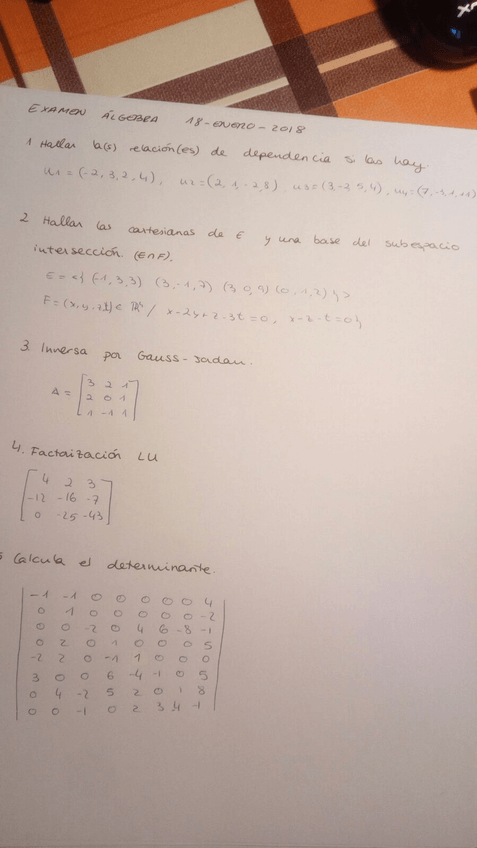 EXAMEN ÁLGEBRA 18-ENERO-2018
1 Hallar la(s) relación(es) de dependencia si las hay
u1 = (-2, 3, 2, 4), u2 = (2, 1, -2, 8), u3 = (3 -2, 5, 4), u4 = (7, -3, 1,
2 Hallar las cartesianas de E y una base del subespacio
intersección. (E∩F).
E = <{ (-1, 3, 3) (3, -1, 7) (3, 0, 9) (0, -1, 2) }>
F = (x, y, z, t) ∈ ℝ⁴ / x-2y+z-3t=0, x-z-t=0}
3. Inversa por Gauss-Jordan.
A = [ 3 2 1
2 0 1
1 -1 1 ]
4. Factorización LU
[ 4 2 3
-12 -16 -7
0 -25 -43 ]
Calcula el determinante.
| -1 -1 0 0 0 0 0 4 |
| 0 1 0 0 0 0 0 -2 |
| 0 0 -2 0 4 6 -8 -1 |
| 0 2 0 1 0 0 0 5 |
| -2 2 0 -1 1 0 0 0 |
| 3 0 0 6 -4 -1 0 5 |
| 0 4 -2 5 2 0 1 8 |
| 0 0 -1 0 2 3 4 -1 |